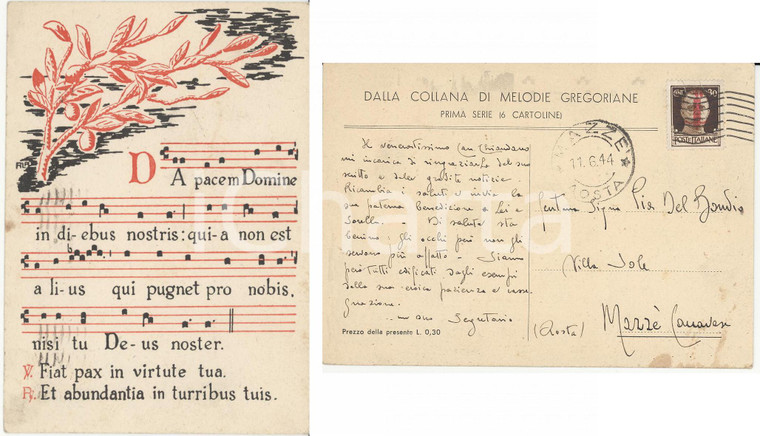 DA pacem Domine
in di-ebus nostris: qui-a non est
a li-us qui pugnet pro nobis,
nisi tu De-us noster.
℣. Fiat pax in virtute tua.
℟. Et abundantia in turribus tuis.
DALLA COLLANA DI MELODIE GREGORIANE
PRIMA SERIE (6 CARTOLINE)
Il veneratissimo Can Chiandano
mi incarica di ringraziarLa del suo
scritto e delle gradite notizie.
Ricambia i saluti e invia la
sua paterna Benedizione a Lei e
Sorelle. Di salute sta
benino; gli occhi però non gli
servono più affatto - Siamo
però tutti edificati dagli esempi
della sua eroica pazienza e rasse-
gnazione.
suo Segretario
Prezzo della presente L. 0,30
MAZZE
11.6.44
AOSTA
30
POSTE ITALIANE
Signa Pia Del Bondio
Villa Sole
Mazzè Canavese
(Aosta)